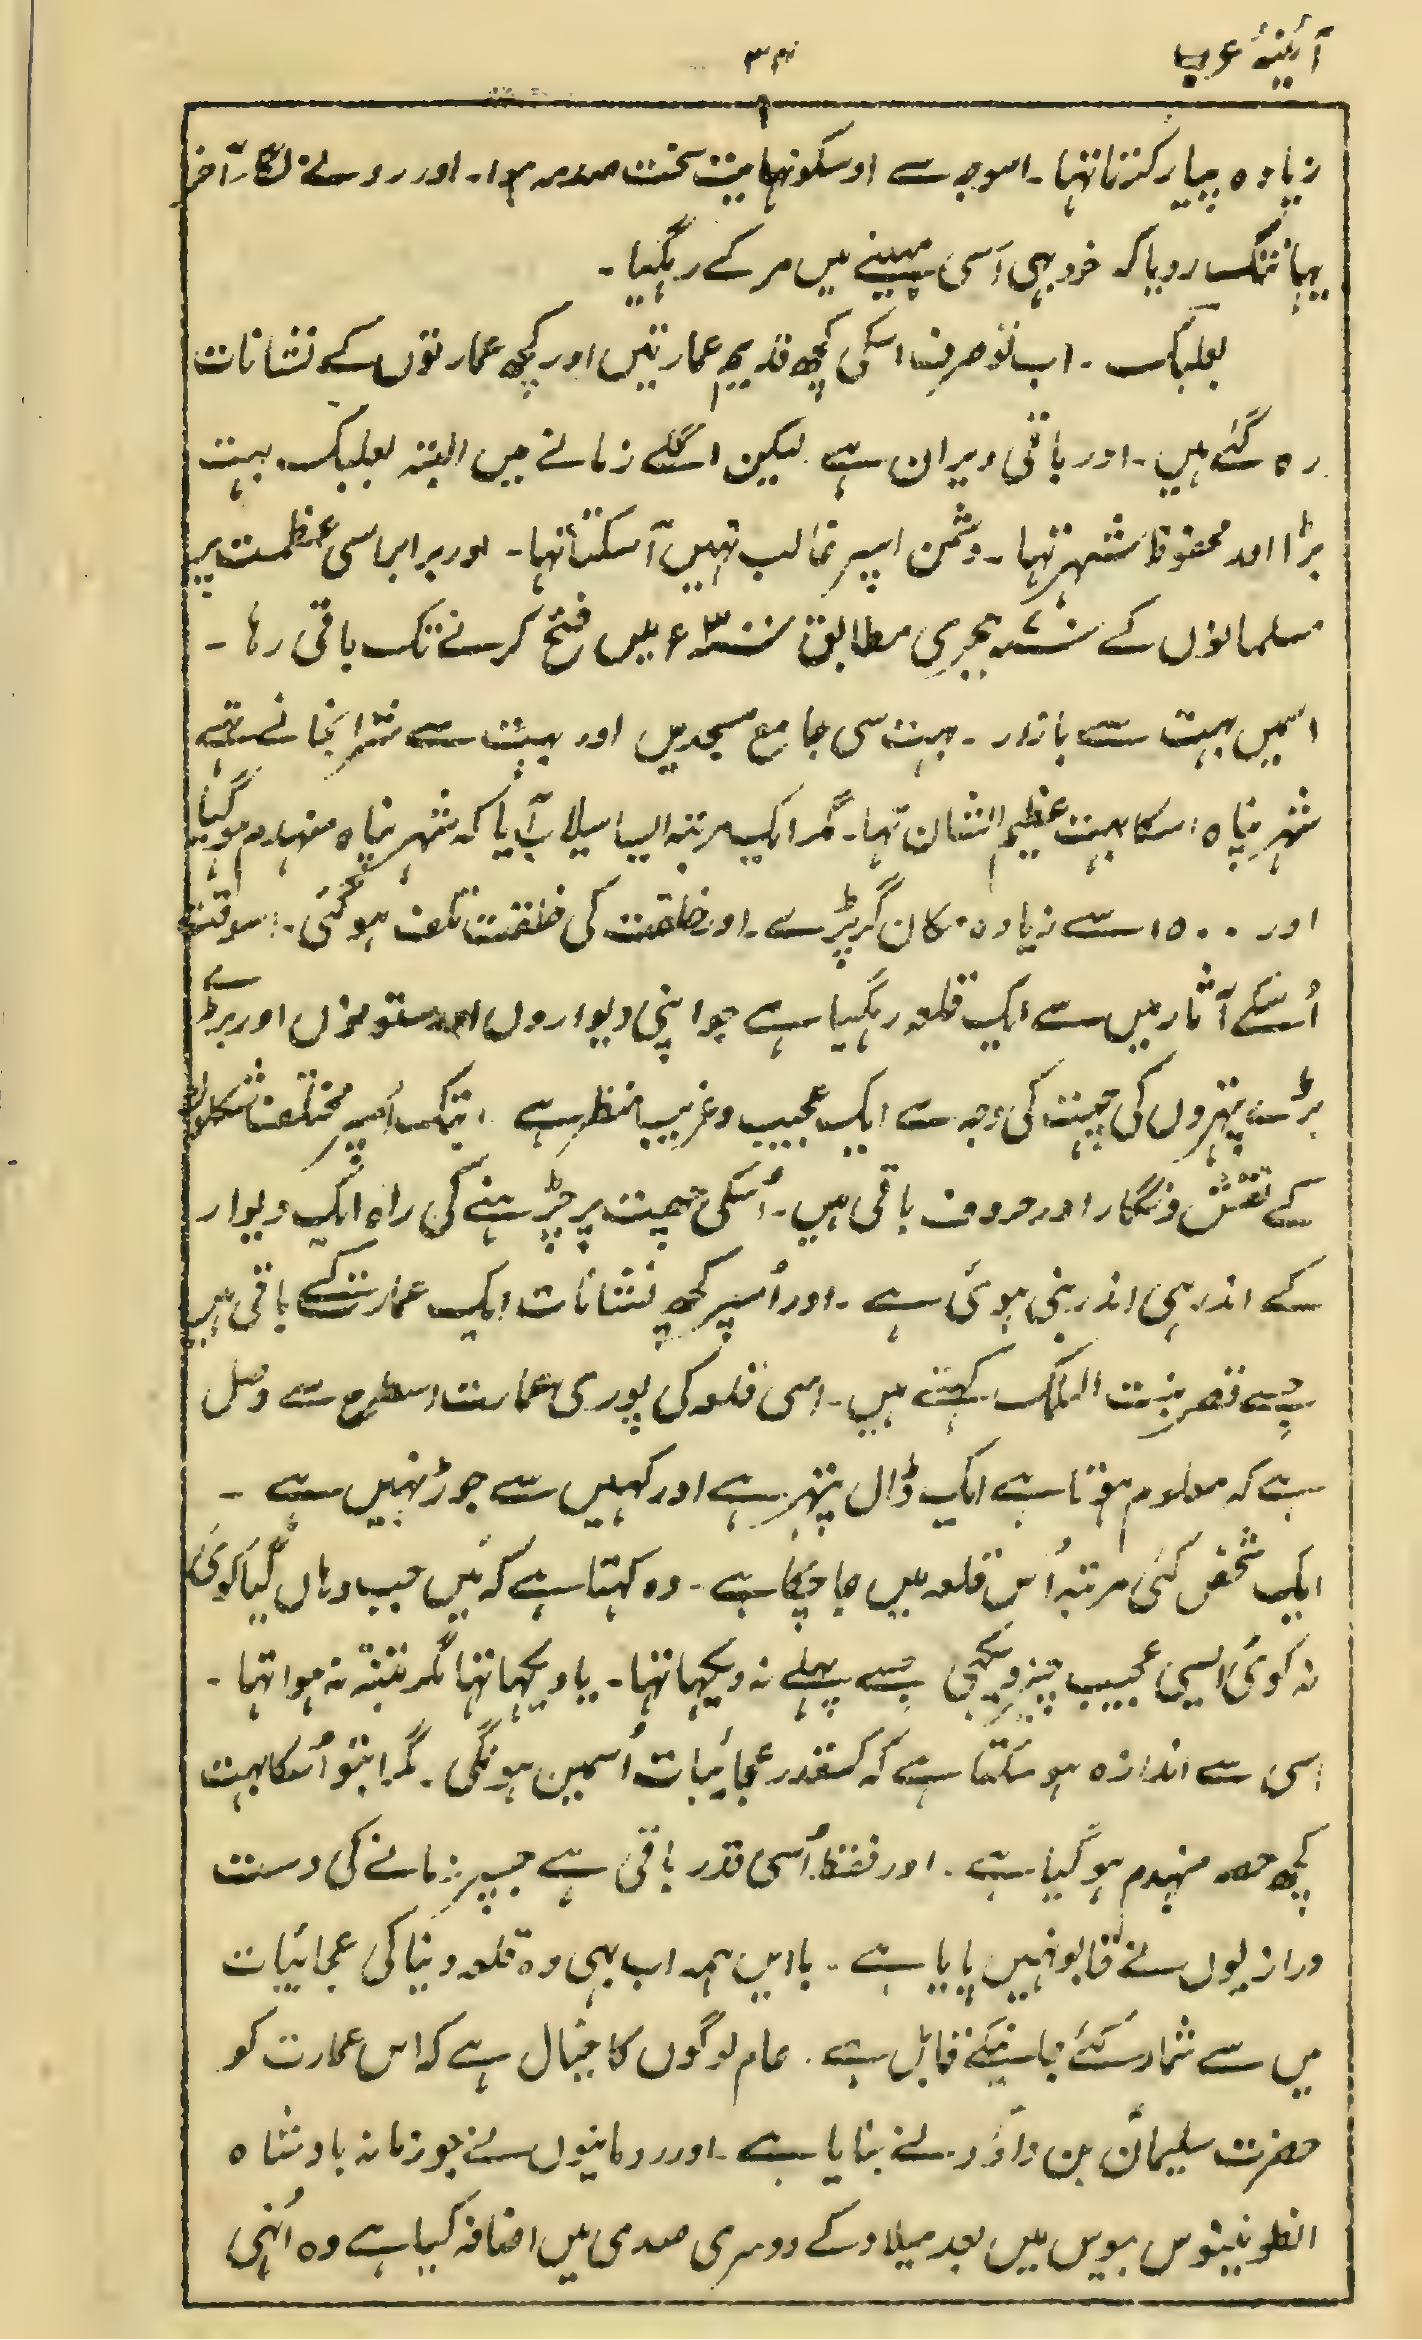 آئینۂ عرب
زیادہ پیار کرتا تہا۔ اسوجہ سے اوسکو نہایت سخت صدمہ ہوا۔ اور رونے لگا۔ آخر
یہانتک رویا کہ خود بہی اُسی مہینے میں مر کے رہگیا۔
بعلبک ۔ اب تو صرف اسکی کچھ قدیم عمارتیں اور کچھ عمارتوں کے نشانات
رہ گئے ہیں۔ اور باقی ویران ہے لیکن اگلے زمانے میں البتہ بعلبک بہت
بڑا اور محفوظ شہر تہا۔ دشمن اسپر غالب نہیں آسکتا تہا۔ اور برابر اسی عظمت پر
مسلمانوں کے ہجری مطابق میں فتح کرنے تک باقی رہا ۔
اسمیں بہت سے بازار ۔ بہت سی جامع مسجدیں اور بہت سے شرابخانے تہے
شہر پناہ اسکا بہت عظیم الشان تہا۔ مگر ایک مرتبہ ایسا سیلاب آیا کہ شہر پناہ منہدم ہو گیا
اور ۱۵۰۰ سے زیادہ مکان گر پڑے۔ اور خلقت کی خلقت تلف ہو گئی۔ اسوقت
اُسکے آثار میں سے ایک قلعہ رہگیا ہے جو اپنی دیواروں اور ستونوں اور بڑے
بڑے پتہروں کی چہت کی وجہ سے ایک عجیب و غریب منظر ہے ۔ ابتک اُسپر مختلف شکلوں
کے نقش و نگار اور حروف باقی ہیں۔ اُسکی چہت پر چڑہنے کی راہ ایک دیوار
کے اندر ہی اندر بنی ہوئی ہے ۔ اور اُسپر کچھ نشانات ایک عمارت کے باقی ہیں
جسے قصر بنت الملک کہتے ہیں۔ اسی قلعہ کی پوری عمارت اسطرح سے وصل
ہے کہ معلوم ہوتا ہے ایک ڈال پتہر ہے اور کہیں سے جوڑ نہیں ہے ۔
ایک شخص کئی مرتبہ اُس قلعہ میں جا چکا ہے ۔ وہ کہتا ہے کہ میں جب وہاں گیا کوئی
نہ کوئی ایسی عجیب چیز دیکہی جسے پہلے نہ دیکہا تہا۔ یا دیکہا تہا مگر نہ ہوا تہا ۔
اسی سے اندازہ ہو سکتا ہے کہ کسقدر عجائبات اُسمین ہونگی ۔ مگر ابتو اُسکا بہت
کچھ حصہ منہدم ہو گیا ہے ۔ اور فقط اُسی قدر باقی ہے جسپر زمانے کی دست
درازیوں نے قابو نہیں پایا ہے ۔ بااین ہمہ اب بہی وہ قلعہ دنیا کی عجائبات
میں سے شمار کئے جانیکے قابل ہے ۔ عام لوگوں کا خیال ہے کہ اس عمارت کو
حضرت سلیمان بن داؤد نے بنایا ہے ۔ اور رومانیوں نے جو زمانہ بادشاہ
انطونینوس بیوس میں بعد میلاد کے دوسری صدی میں اضافہ کیا ہے وہ اُنہی